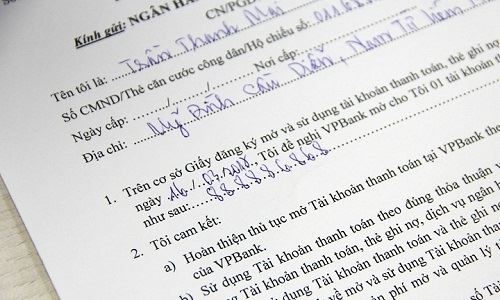 CN/PGD
Kính gửi: NGÂN HÀ
Tên tôi là: Trần Thanh Mai
Số CMND/Thẻ căn cước công dân/Hộ chiếu số:
Ngày cấp: ....../....../...... Nơi cấp:
Địa chỉ: Mỹ Đình Cầu Diễn, Nam Từ Liêm
1. Trên cơ sở Giấy đăng ký mở và sử dụng tài khoản thanh toán, thẻ ghi nợ
ngày 16/03/2018, Tôi đề nghị VPBank mở cho Tôi 01 tài khoản
như sau:
2. Tôi cam kết:
a) Hoàn thiện thủ tục mở Tài khoản thanh toán tại VPBank
của VPBank.
b) Sử dụng Tài khoản thanh toán theo đúng thỏa thuận
Tài khoản thanh toán, thẻ ghi nợ, dịch vụ ngân
dụng Tài khoản thanh toán và thẻ ghi
về mở và sử dụng Tài khoản
phí mở và quản lý
số Tài